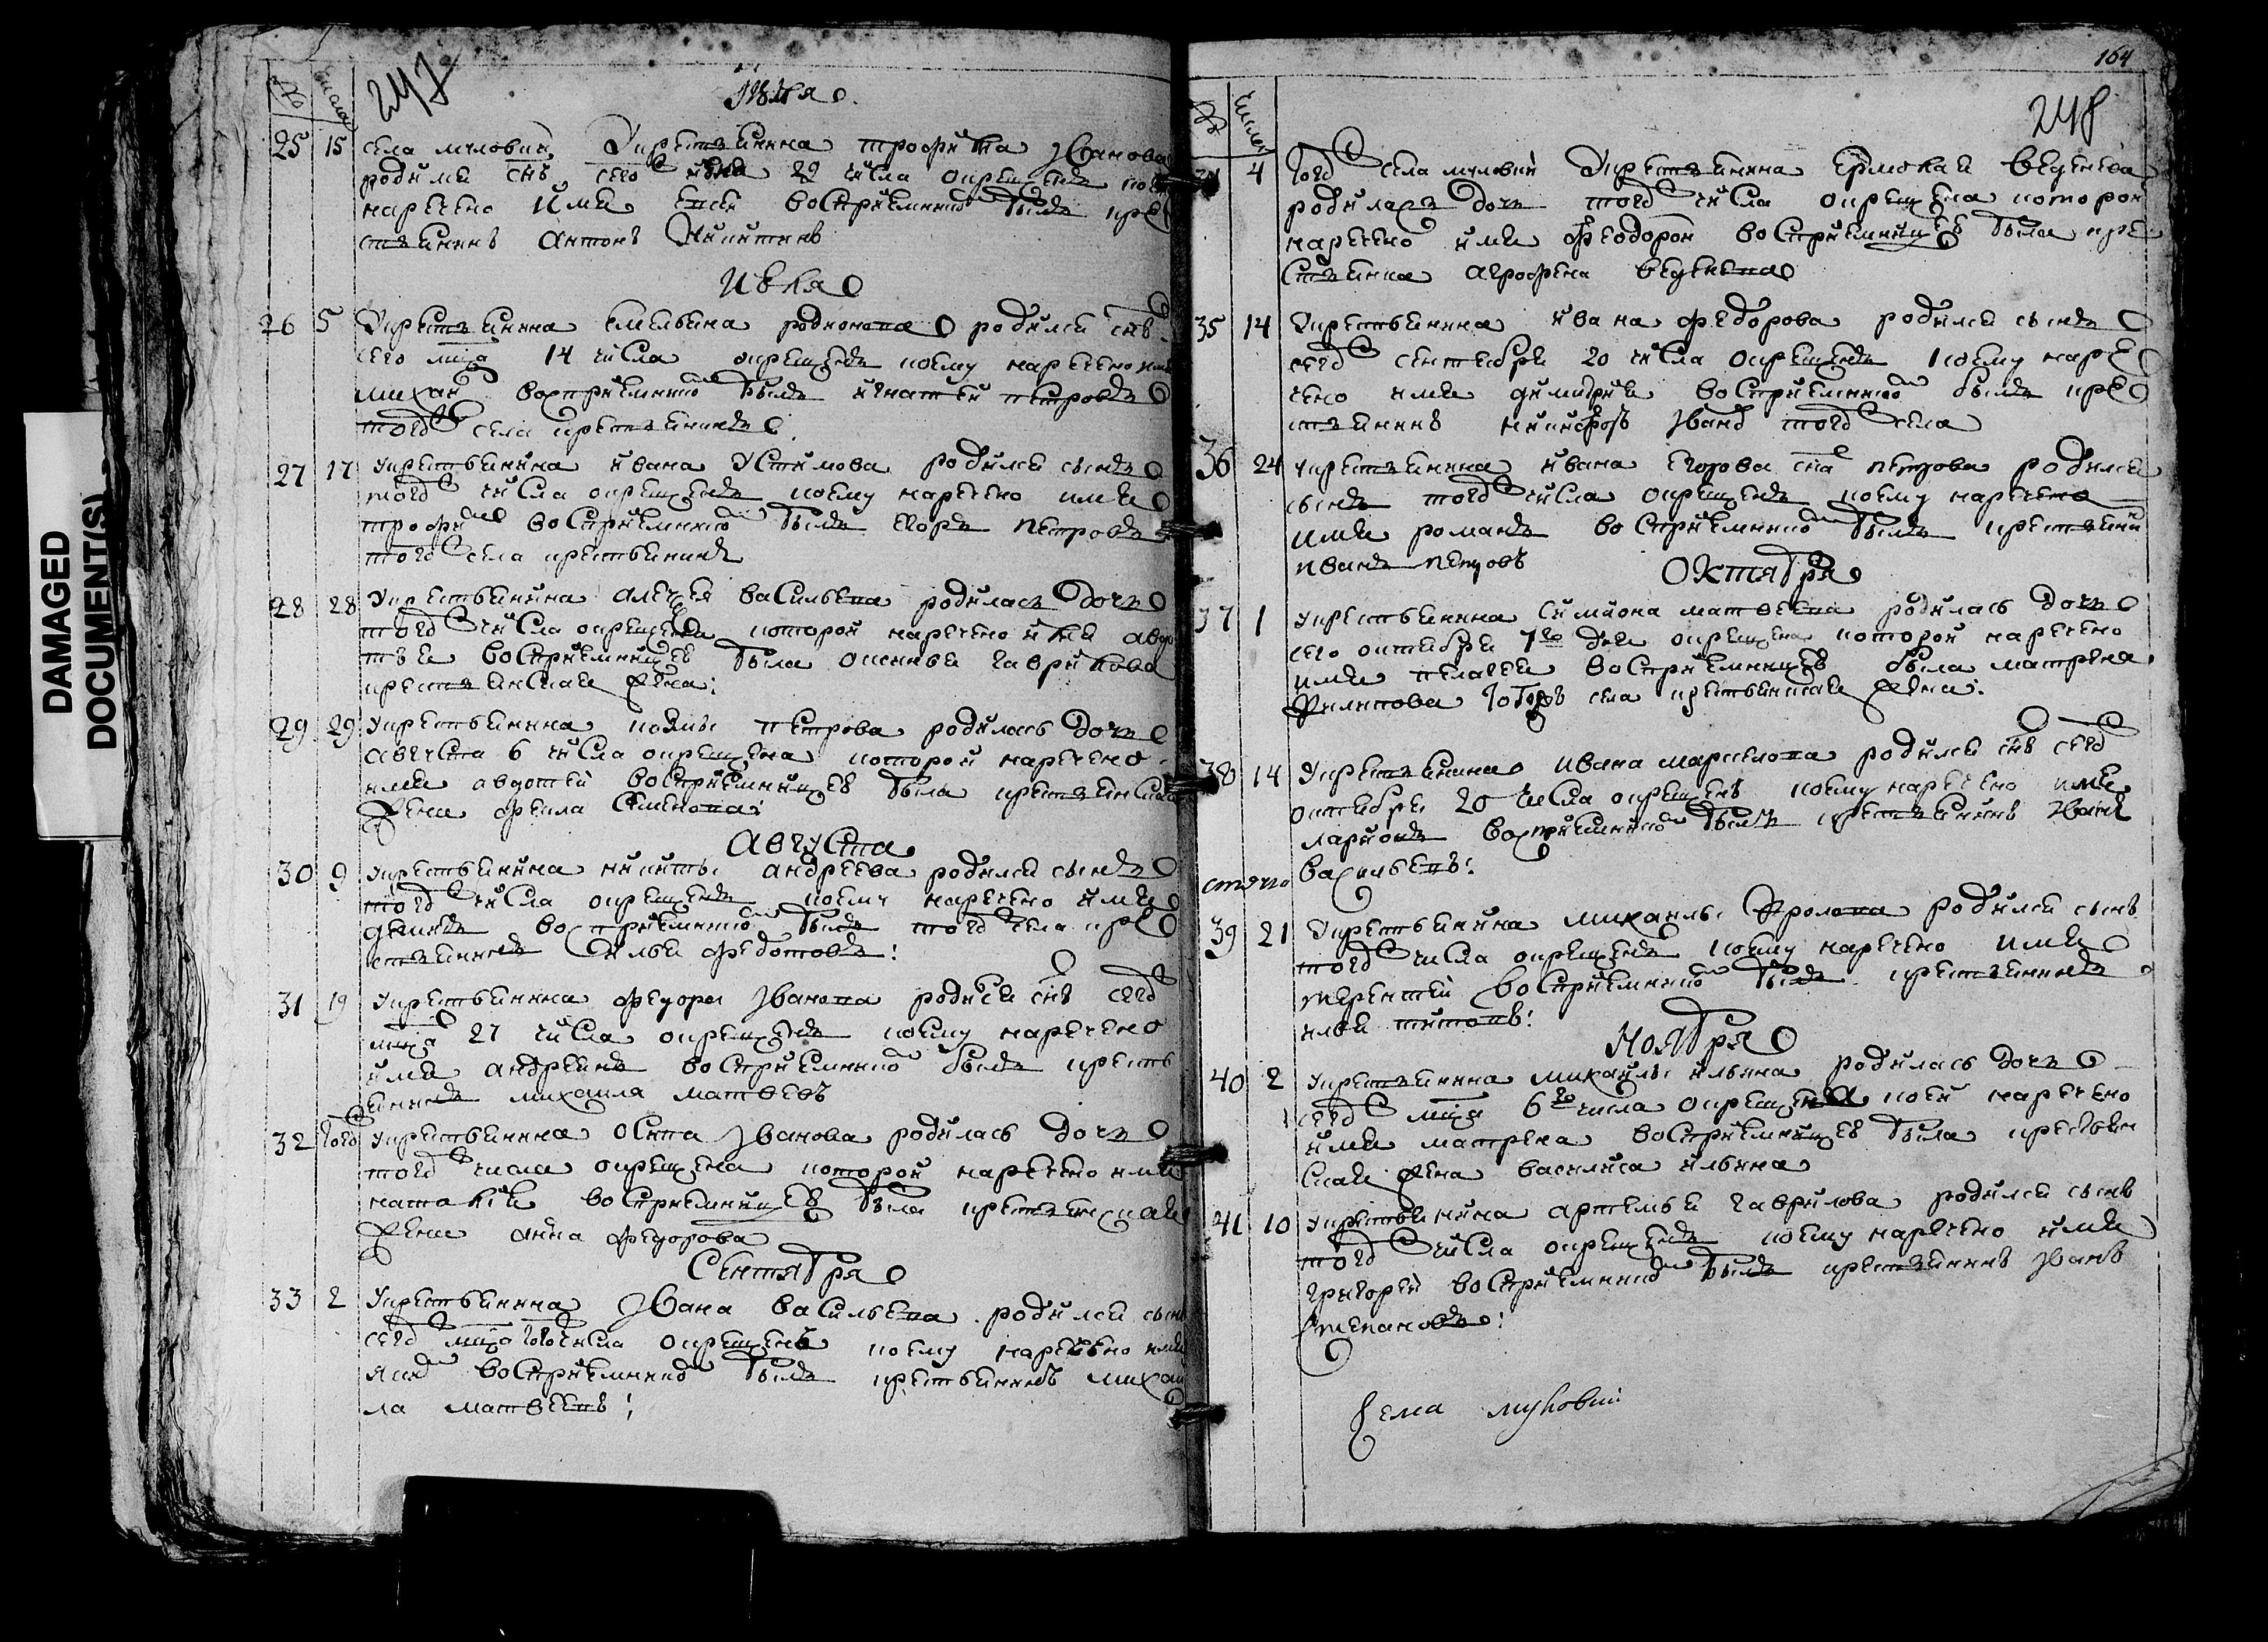 DAMAGED
DOCUMENT(S)
№ числа 247
июня
25 15 села муловки у крестьянина трофима Иванова
родился снъ сего июня 22 числа окрещенъ
наречено имя восприемникомъ былъ кре
стьянинъ антонъ Никитинъ
июля
26 5 У крестьянина емельяна родионова родился снъ
сего мца 14 числа окрещенъ коему наречено имя
михаи восприемникомъ былъ игнатеи петровъ
того села крестьянинъ
27 17 У крестьянина ивана Устимова родился сынъ
того числа окрещенъ коему наречено имя
трофимъ восприемникомъ былъ егоръ петровъ
того села крестьянинъ
28 28 У крестьянина алексея васильева родилась дочь
того числа окрещена которой наречено имя авдо
тья восприемницею была оксинья гаврилова
крестьянская жена:
29 29 У крестьянина козмы петрова родилась дочь
августа 6 числа окрещена которой наречено
имя авдотья восприемницею была крестьянская
жена фекла Семенова:
Августа
30 9 У крестьянина никиты андреева родился сынъ
того числа окрещенъ коему наречено имя
восприемникомъ былъ того села кре
стьянинъ илья федотовъ:
31 19 У крестьянина федора Иванова родился снъ сего
мца 27 числа окрещенъ коему наречено
имя андреянъ восприемникомъ былъ кресть
янинъ михаила матвеевъ
32 того У крестьянина Осипа Иванова родилась дочь
того числа окрещена которой наречено имя
наталия восприемницею была крестьянская
жена анна федорова
Сентября
33 2 У крестьянина Ивана васильева родился сынъ
сего мца числа окрещенъ коему наречено имя
яковъ восприемникомъ былъ крестьянинъ михаи
ла матвеевъ;
164
№ числа 248
34 4 того села муловки у крестьянина ермолая веденева
родилась дочь того числа окрещена которой
наречено имя феодора восприемницею была кре
стьянка агрофена веденева
35 14 У крестьянина ивана федорова родился сынъ
сего сентября 20 числа окрещенъ коему наре
чено имя димитрия восприемникомъ былъ кре
стьянинъ никифоръ Ивановъ того села
36 24 У крестьянина ивана егорова сна петрова родился
сынъ того числа окрещенъ коему наречено
имя романъ восприемникомъ былъ крестьянинъ
иванъ петровъ
Октября
37 1 У крестьянина симиона матвеева родилась дочь
сего октября 7го дня окрещена которой наречено
имя пелагея восприемницею была матрена
Филипова тогожъ села крестьянская жена:
38 14 У крестьянина ивана маркелова родился снъ сего
октября 20 числа окрещенъ коему наречено имя
ларионъ восприемникомъ былъ крестьянинъ Иванъ
васильевъ:
39 21 У крестьянина михаилы Фролова родился сынъ
того числа окрещенъ коему наречено имя
терентей восприемникомъ былъ крестьянинъ
илья титовъ:
Ноября
40 2 У крестьянина михаилы ильина родилась дочь
сего мца 6го числа окрещена коей наречено
имя матрена восприемницею была крестьян
ская жена василиса ильина
41 10 У крестьянина артемья гаврилова родился сынъ
того числа окрещенъ коему наречено имя
григорей восприемникомъ былъ крестьянинъ Иванъ
степановъ:
села муловки